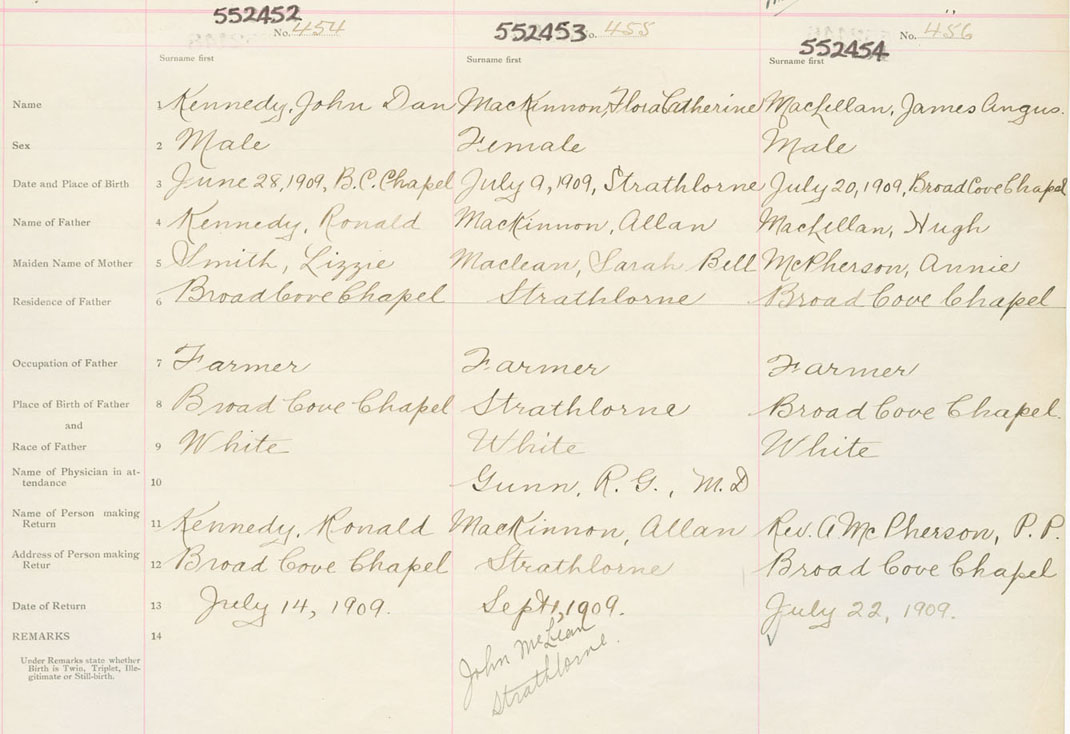 552452 552453 552454
No. 454 o. 455 No. 456
Surname first Surname first Surname first
Name 1 Kennedy, John Dan MacKinnon, Flora Catherine MacLellan, James Angus.
Sex 2 Male Female Male
Date and Place of Birth 3 June 28, 1909, B.C. Chapel July 9, 1909, Strathlorne July 20, 1909, Broad Cove Chapel
Name of Father 4 Kennedy, Ronald MacKinnon, Allan MacLellan, Hugh
Maiden Name of Mother 5 Smith, Lizzie Maclean, Sarah Bell McPherson, Annie
Residence of Father 6 Broad Cove Chapel Strathlorne Broad Cove Chapel
Occupation of Father 7 Farmer Farmer Farmer
Place of Birth of Father 8 Broad Cove Chapel Strathlorne Broad Cove Chapel.
and
Race of Father 9 White White White
Name of Physician in at-
tendance 10 Gunn, R. G., M.D
Name of Person making
Return 11 Kennedy, Ronald MacKinnon, Allan Rev. A McPherson, P.P.
Address of Person making
Retur 12 Broad Cove Chapel Strathlorne Broad Cove Chapel
Date of Return 13 July 14, 1909. Sept 1, 1909. July 22, 1909.
REMARKS 14
John McLean
Strathlorne.
Under Remarks state whether
Birth is Twin, Triplet, Ille-
gitimate or Still-birth.